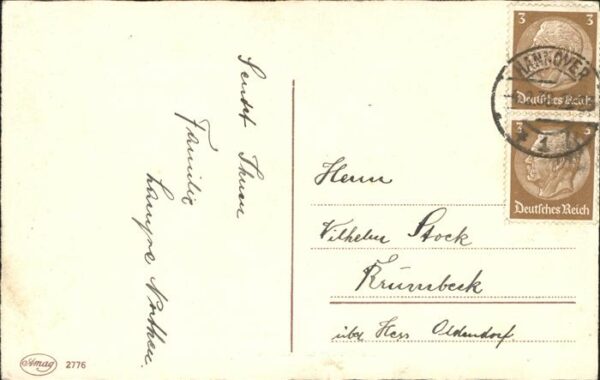 Sendet Ihnen
Familie
Herrn
Wilhelm Stock
Krumbeck
über Hess Oldendorf.
3 3
Deutsches Reich
HANNOVER
1
3
Deutsches Reich
Amag 2776